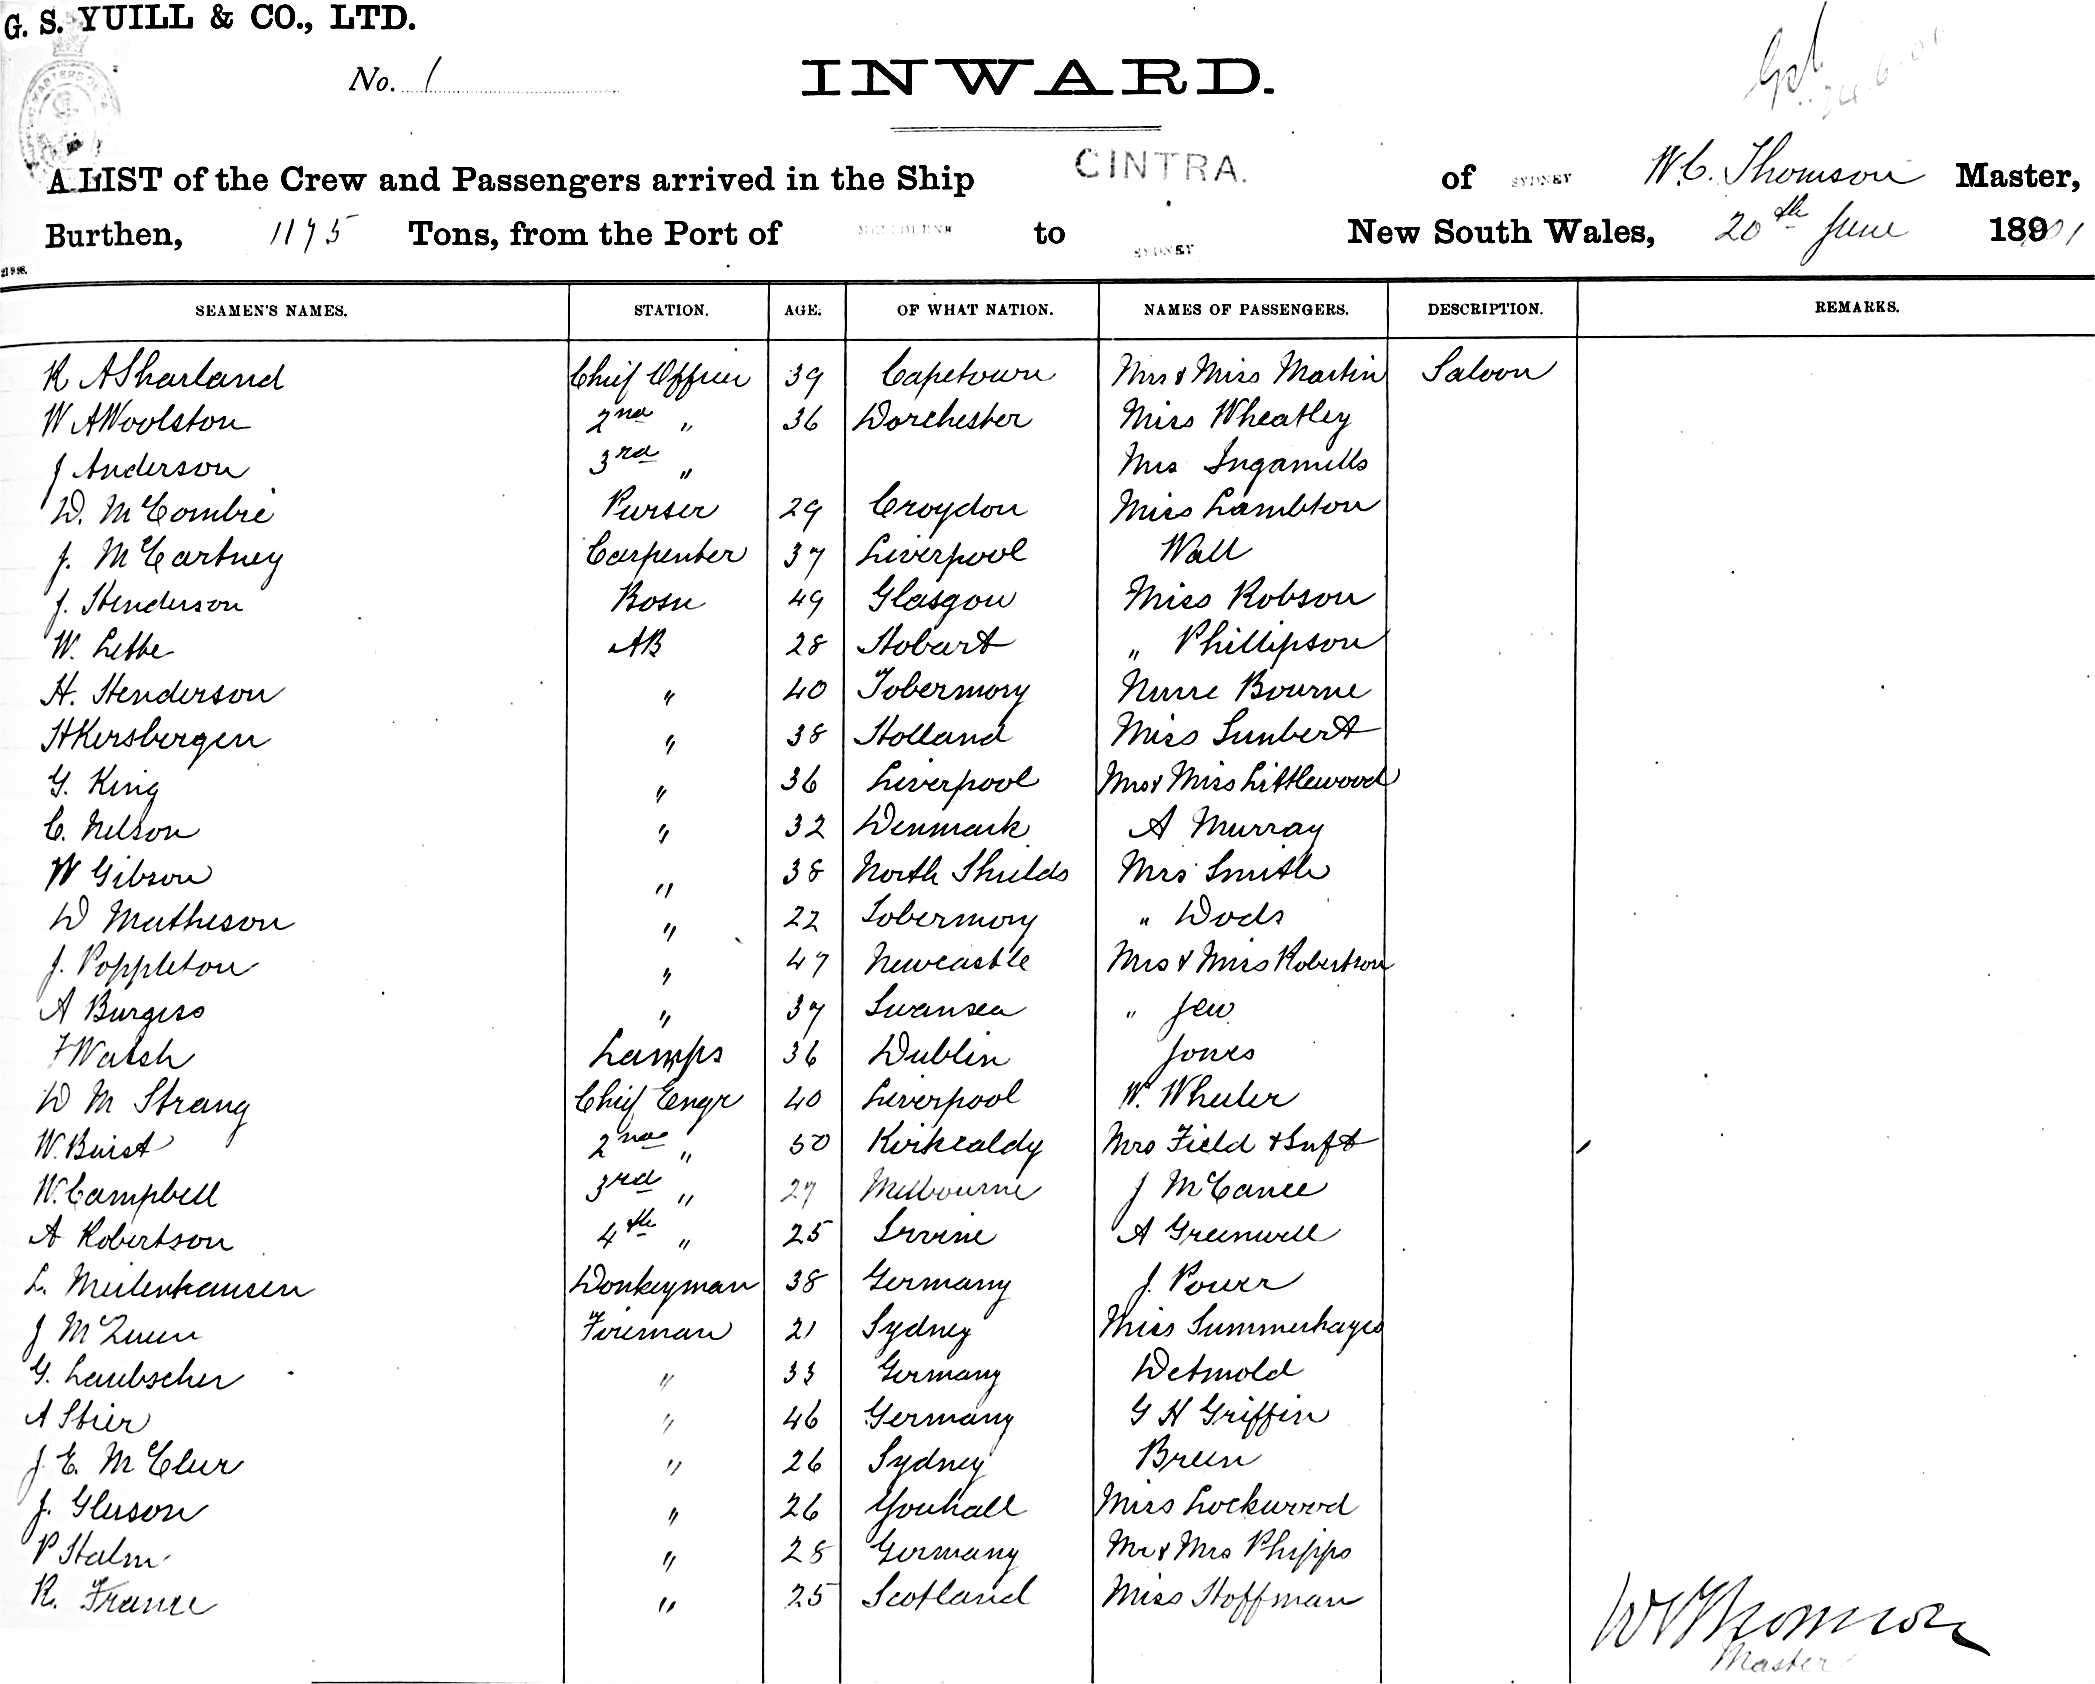 G. S. YUILL & CO., LTD.
No. 1
INWARD.
A LIST of the Crew and Passengers arrived in the Ship CINTRA. of SYDNEY W. C. Thomson Master,
Burthen, 1175 Tons, from the Port of MELBOURNE to SYDNEY New South Wales, 20th June 1901
SEAMEN'S NAMES. STATION. AGE. OF WHAT NATION. NAMES OF PASSENGERS. DESCRIPTION. REMARKS.
R A Sharland Chief Officer 39 Capetown Mrs & Miss Martin Saloon
W A Woolston 2nd " 36 Dorchester Miss Wheatley
J Anderson 3rd " Mrs Ingamells
D. McCombie Purser 29 Croydon Miss Lambton
J. McCartney Carpenter 37 Liverpool Wall
J. Henderson Bosn 49 Glasgow Miss Robson
W. Lette AB 28 Hobart " Phillipson
H. Henderson " 40 Tobermory Nurse Bourne
H Kersbergen " 38 Holland Miss
G. King " 36 Liverpool Mrs & Miss Littlewood
C. Nelson " 32 Denmark A Murray
W Gibson " 38 North Shields Mrs Smith
D Matheson " 22 Tobermory " Wods
J. Poppleton " 47 Newcastle Mrs & Miss Robertson
A Burgess " 37 Swansea " Jew
F Walsh Lamps 36 Dublin Jones
D M Strang Chief Engr 40 Liverpool W. Wheeler
W. Buist 2nd " 50 Kirkcaldy Mrs Field & Inft
W. Campbell 3rd " 27 Melbourne J McCance
A Robertson 4th " 25 Irvine A Greenwell
L. Meilenhausen Donkeyman 38 Germany J. Power
J McQueen Fireman 21 Sydney Miss Summerhayes
G. Laubscher " 33 Germany Detmold
A Stier " 46 Germany G H Griffin
J. E. McClur " 26 Sydney Breen
J. Gleeson " 26 Youhall Miss Lockwood
P Halm " 28 Germany Mr & Mrs Phipps
R. France " 25 Scotland Miss Hoffman
W C Thomson
Master